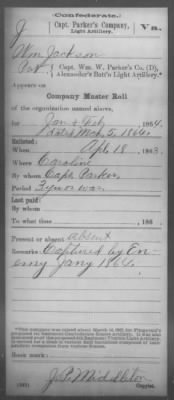 (Confederate.)
J Capt. Parker's Company, Va.
Light Artillery.
Wm Jackson
Pvt, Capt. Wm. W. Parker's Co. (D),
Alexander's Batt'n Light Artillery.*
Appears on
Company Muster Roll
of the organization named above,
for Jan & Feby, 1864.
Enlisted:
When Apl 18, 1863.
Where Caroline
By whom Capt. Parker
Period 3 yrs or war
Last paid:
By whom
To what time , 186 .
Present or absent absent
Remarks: Captured by En-
emy Jany 1864.
Book mark:
J.P. Middleton
Copyist.